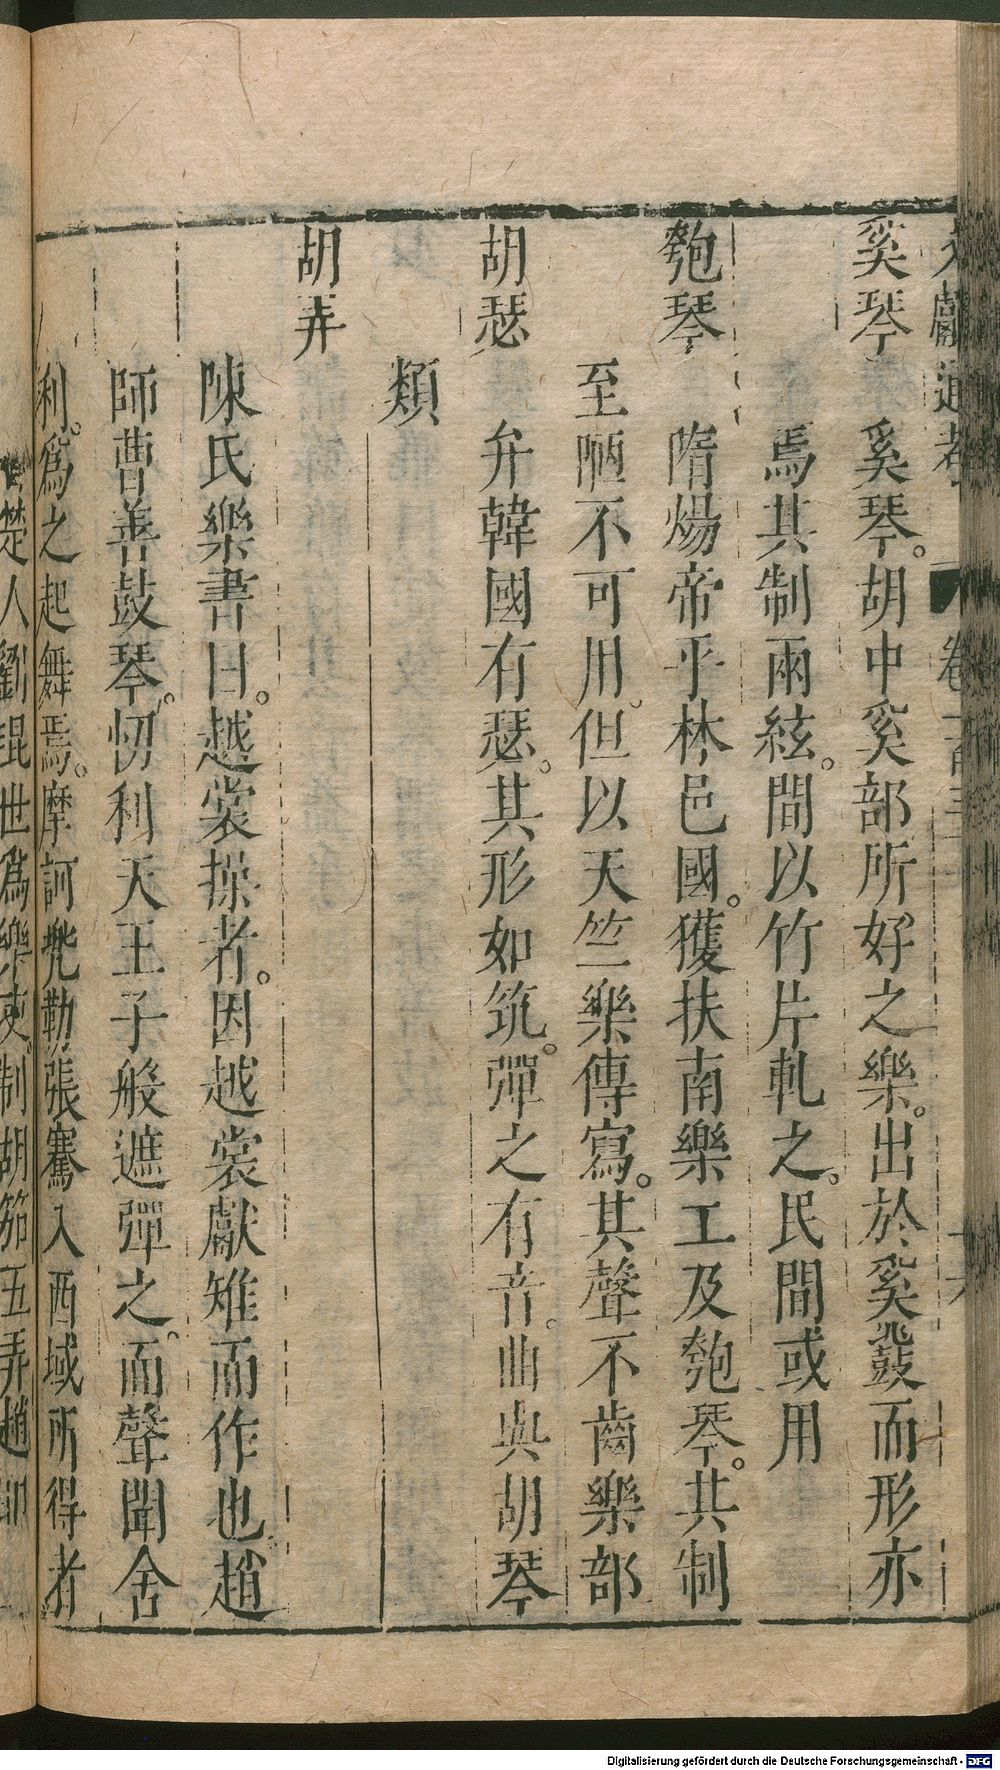 文獻通考 卷一百三 十六
奚琴 奚琴。胡中奚部所好之樂。出於奚鼗而形亦
焉其制兩絃。間以竹片軋之。民間或用
匏琴 隋煬帝平林邑國。獲扶南樂工及匏琴。其制
至陋不可用。但以天竺樂傳寫。其聲不齒樂部
胡瑟 弁韓國有瑟。其形如筑。彈之有音。曲與胡琴
類
胡弄
陳氏樂書曰。越裳操者。因越裳獻雉而作也趙
師曹善鼓琴。忉利天王子般遮彈之。而聲聞舍
利。為之起舞焉。摩訶兠勒張騫入西域所得者
楚人劉琨世為樂吏。制胡笳五弄趙
Digitalisierung gefördert durch die Deutsche Forschungsgemeinschaft - DFG